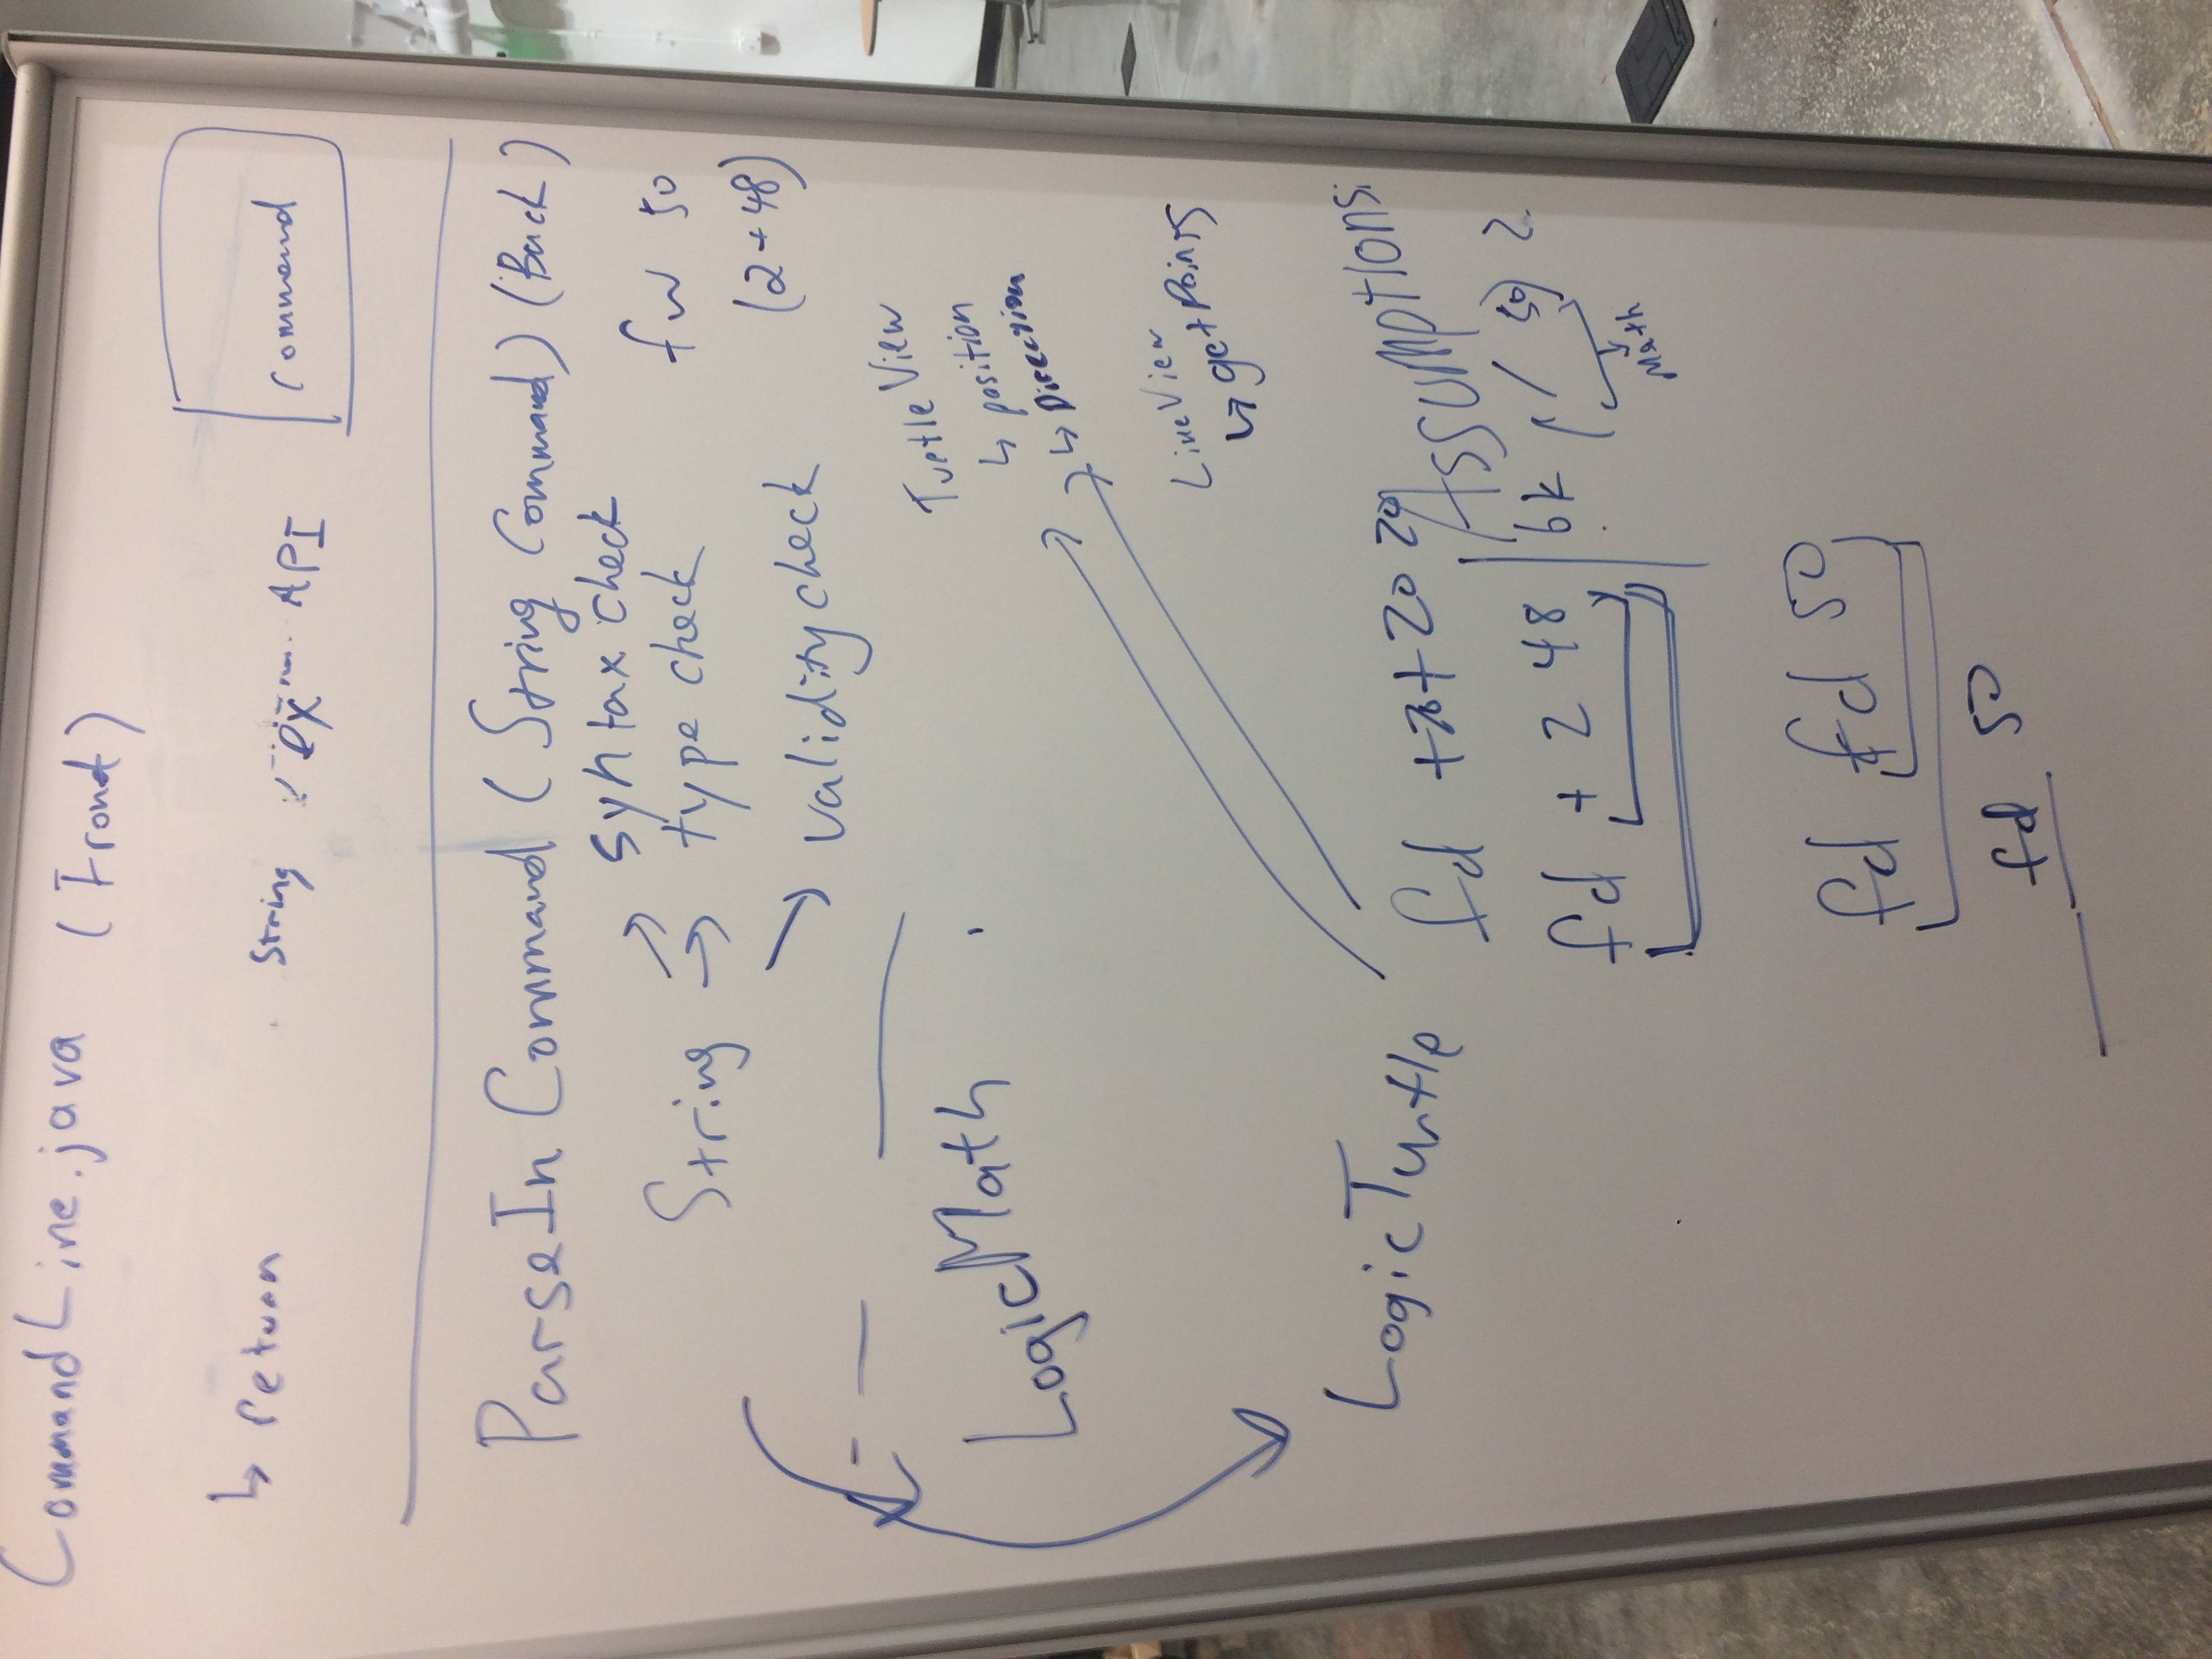 CommandLine.java (Front)
↳ return String API Command
ParseInCommand (String Command) (Back)
String → syntax check
→ type check fw 50
→ validity check (2+48)
TurtleView
↳ position
↳ Direction
LogicMath
LineView
↳ getPoints
LogicTurtle
Assumptions:
fd + 20 20
fd + 2 48
bk / 50 2
Math
fd fd 50
fd 50